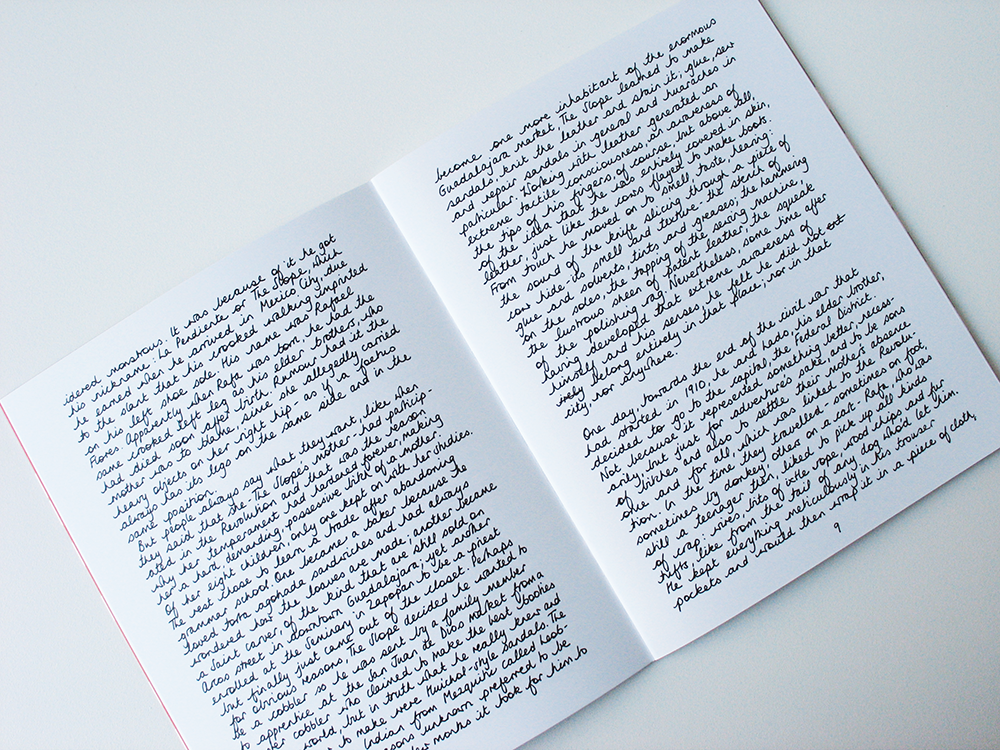 idered monstrous. It was because of it he got
his nickname: La Pendiente or The Slope, which
he earned when he arrived in Mexico City, due
to the slant that his crooked walking imprinted
on his left shoe sole. His name was Rafael
Flores. Apparently when Rafa was born, he had the
same crooked left leg as his elder brothers, who
had died soon after birth. Rumour had it the
mother was to blame, since she allegedly carried
heavy objects on her right hip - as if a foetus
always has its legs on the same side and in the
same position.
But people always say what they want, like when
they said that she, The Slope's mother, had particip-
ated in the Revolution and that was the reason
why her temperament had hardened forever, making
her a hard, demanding, possessive witch of a mother.
Of her eight children, only one kept on with her studies.
The rest chose to learn a trade after abandoning
grammar school. One became a baker because he
loved torta ahogada sandwiches and had always
wondered how the loaves are made; another became
a saint carver, of the kind that are still sold on
Arcos street in downtown Guadalajara; yet another
enrolled at the Seminary in Zapopan to be a priest
but finally just came out of the closet. Perhaps
for obvious reasons, The Slope decided he wanted to
be a cobbler so he was sent by a family member
to apprentice at the San Juan de Dios market from a
cobbler who claimed to make the best booties
world, but in truth what he really knew
to make were Huichol-style sandals. The
Indian from Mezquitic called
unknown preferred to be
marks it took for him to
become one more inhabitant of the enormous
Guadalajara market, The Slope learned to make
sandals, knit the leather and stain it; glue, sew
and repair sandals in general and huaraches in
particular. Working with leather generated an
extreme tactile consciousness, an awareness of
the tips of his fingers, of course, but above all,
of the idea that he was entirely covered in skin,
leather, just like the cows flayed to make boots.
From touch he moved on to smell, taste, hearing:
the sound of the knife slicing through a piece of
cow hide - its smell and texture - the stench of
glue and solvents, tints and greases; the hammering
on the soles, the tapping of the sewing machine,
the lustrous sheen of patent leather, the squeak
of the polishing rag. Nevertheless, some time after
having developed that extreme awareness of
himself and his senses, he felt he did not ent
irely belong entirely in that place; nor in that
city, nor anywhere.
One day, towards the end of the civil war that
had started in 1910, he and Lado, his elder brother,
decided to go to the capital, the Federal District.
Not because it represented something better, necess-
arily, but just for adventure's sake, and to be sons
of bitches and also to settle their mother's absence
once and for all, which was linked to the Revolu-
tion. In the time they travelled - sometimes on foot,
sometimes by donkey, other on a cart - Rafa, who was
still a teenager then, liked to pick up all kinds
of crap: wires, bits of ixtle rope, wood chips and fur
tufts, like from the tail of any dog who'd let him.
He kept everything meticulously in his trouser
pockets and would then wrap it in a piece of cloth,
9